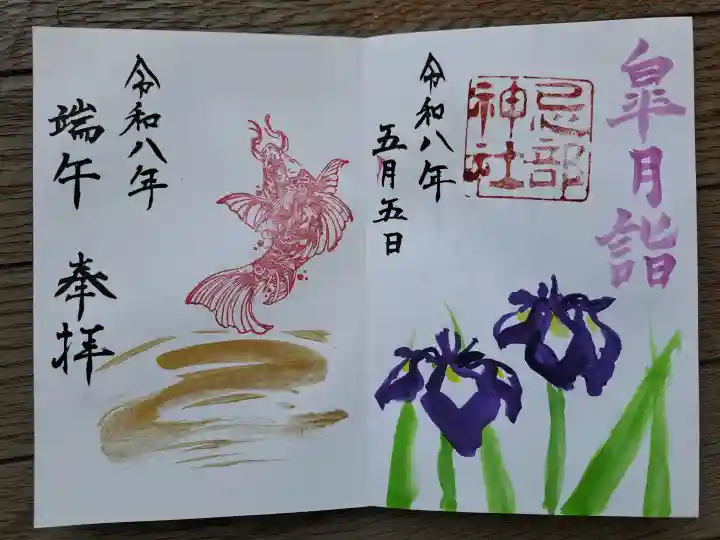 皐月詣
忌部
神社
令和八年
五月五日
令和八年
端午 奉拝